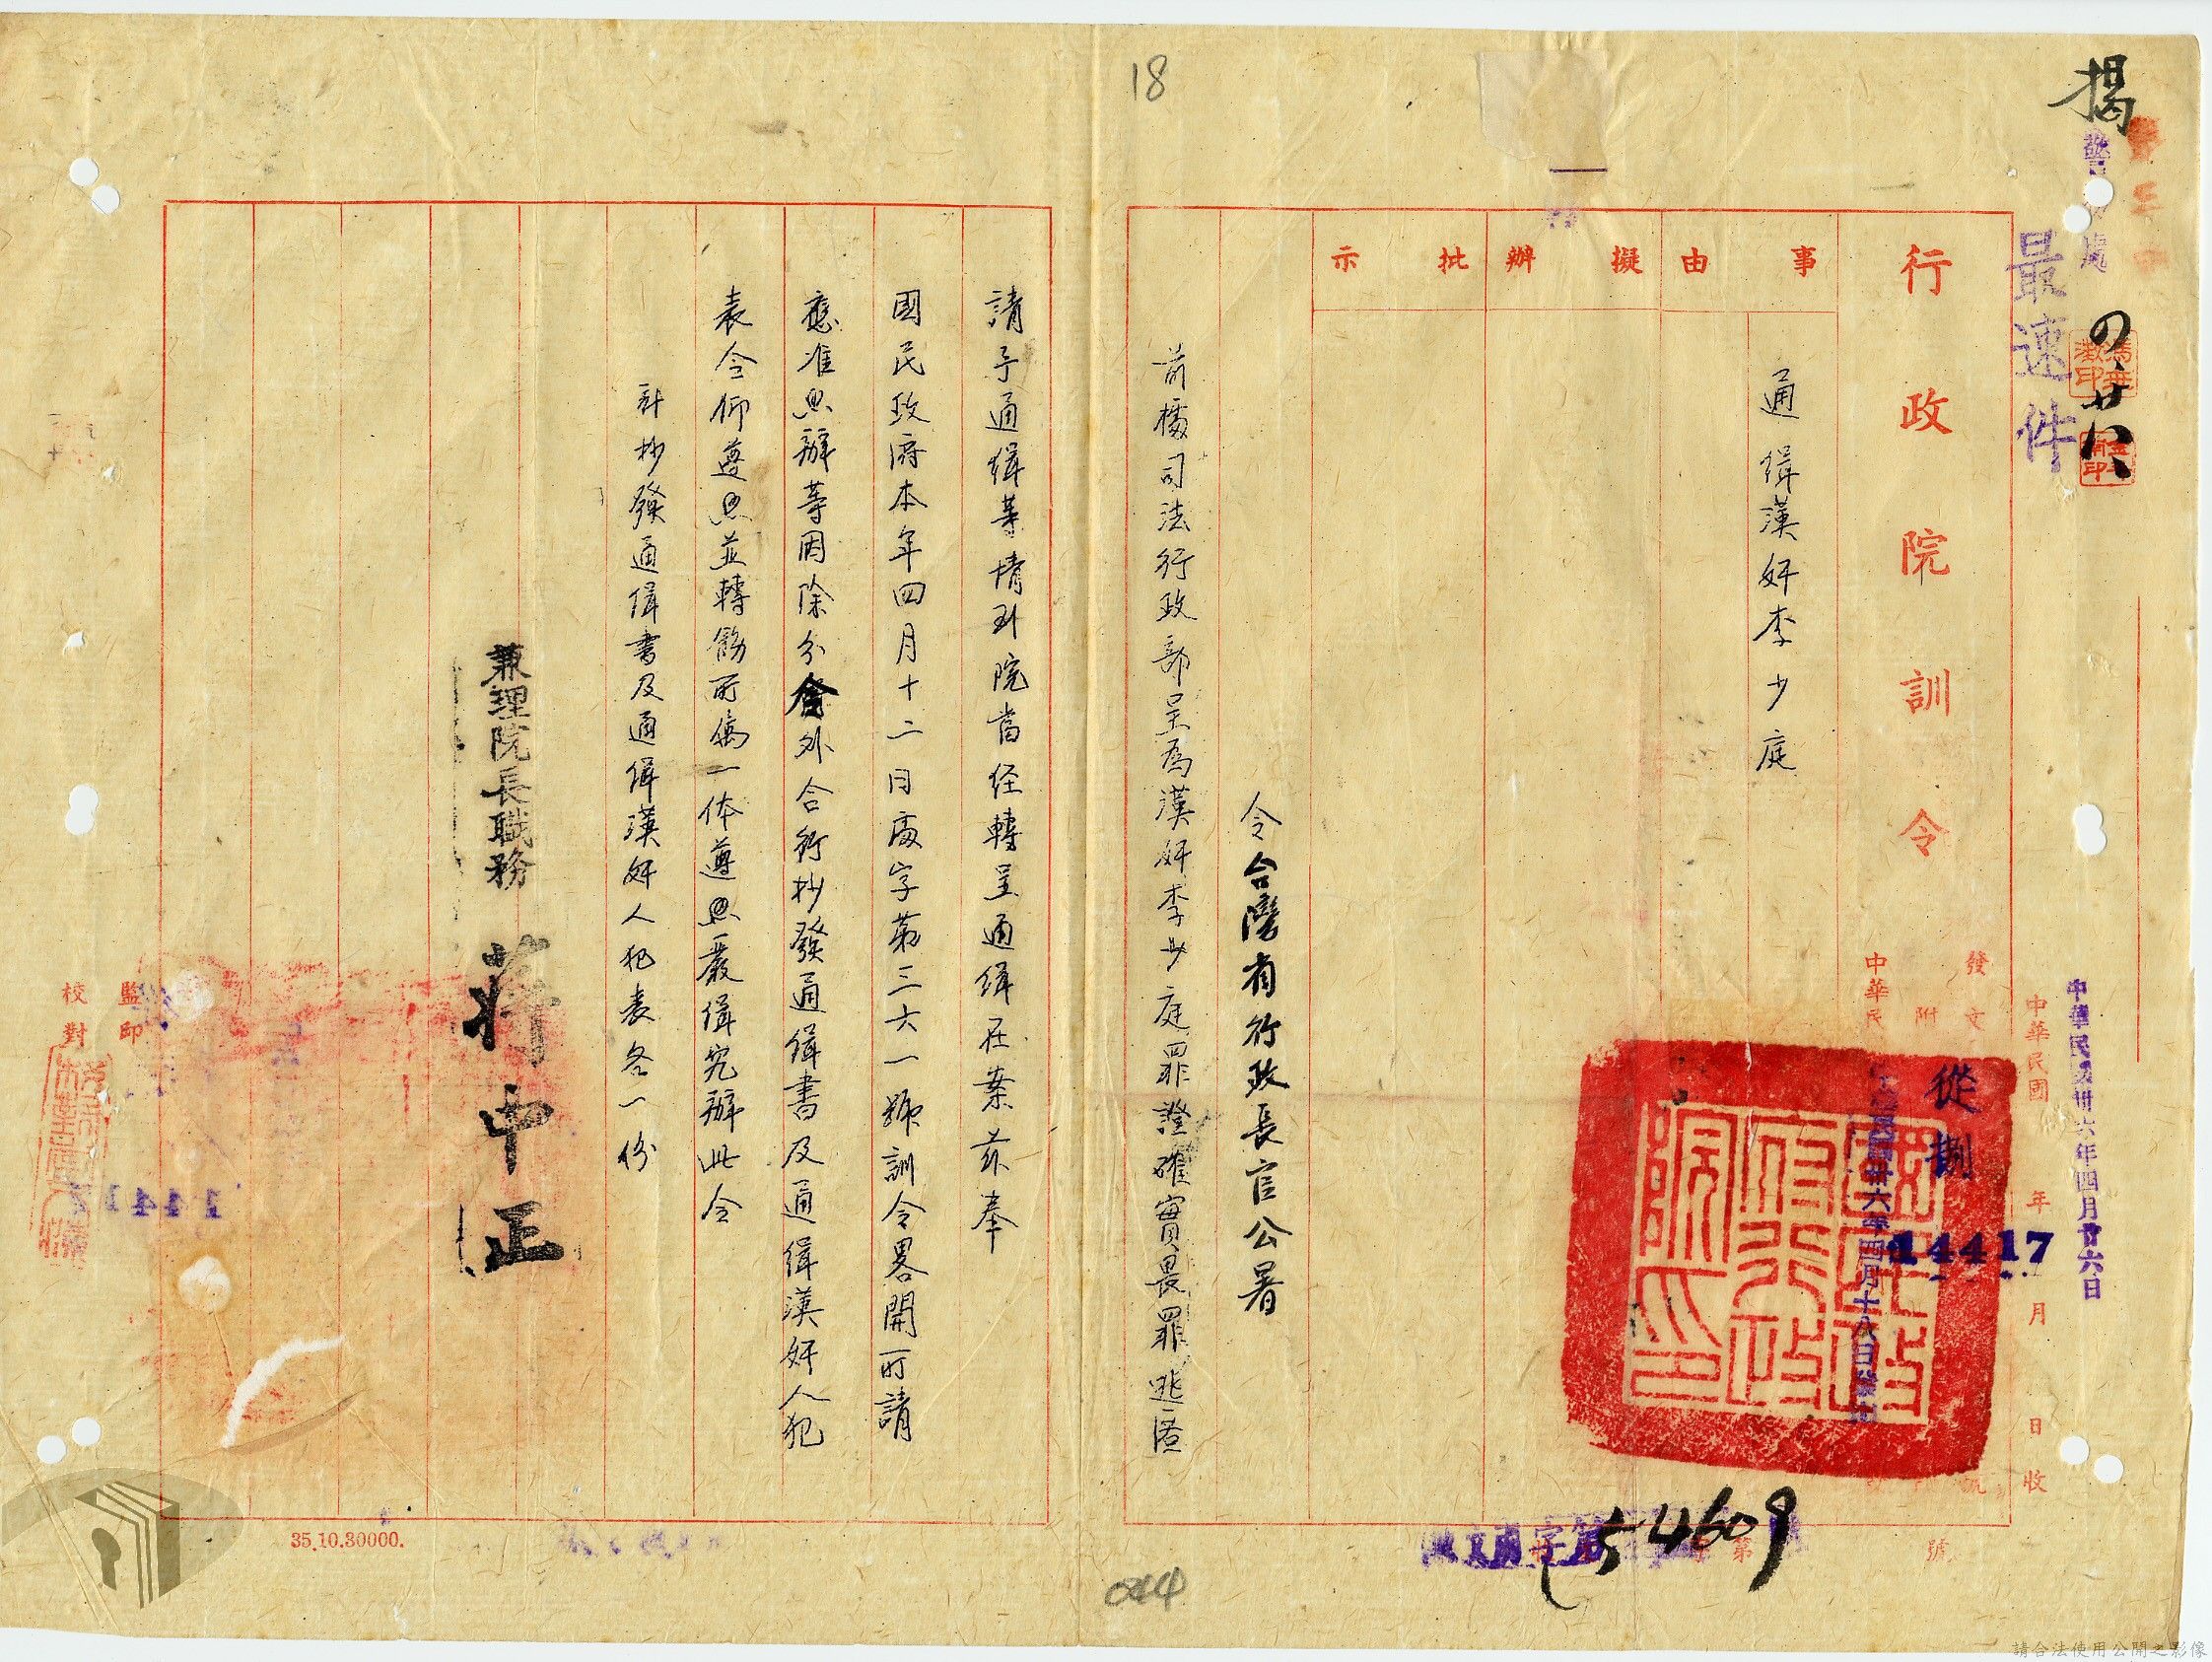 揭
18
最速件
中華民國卅六年四月廿六日
中華民國 年 月 日收
行政院訓令
從捌
14417
事由
擬辦
批示
通緝漢奸李少庭
令台灣省行政長官公署
前據司法行政部呈為漢奸李少庭罪證確實畏罪逃匿
請予通緝等情到院當経轉呈通緝在案茲奉
國民政府本年四月十二日處字第三六一號訓令畧開所請
應准照辦等因除分令外合行抄發通緝書及通緝漢奸人犯
表令仰遵照並轉飭所屬一体遵照嚴緝究辦此令
計抄發通緝書及通緝漢奸人犯表各一份
兼理院長職務 蔣中正
監印
校對
54609
35.10.30000.
請合法使用公開之影像